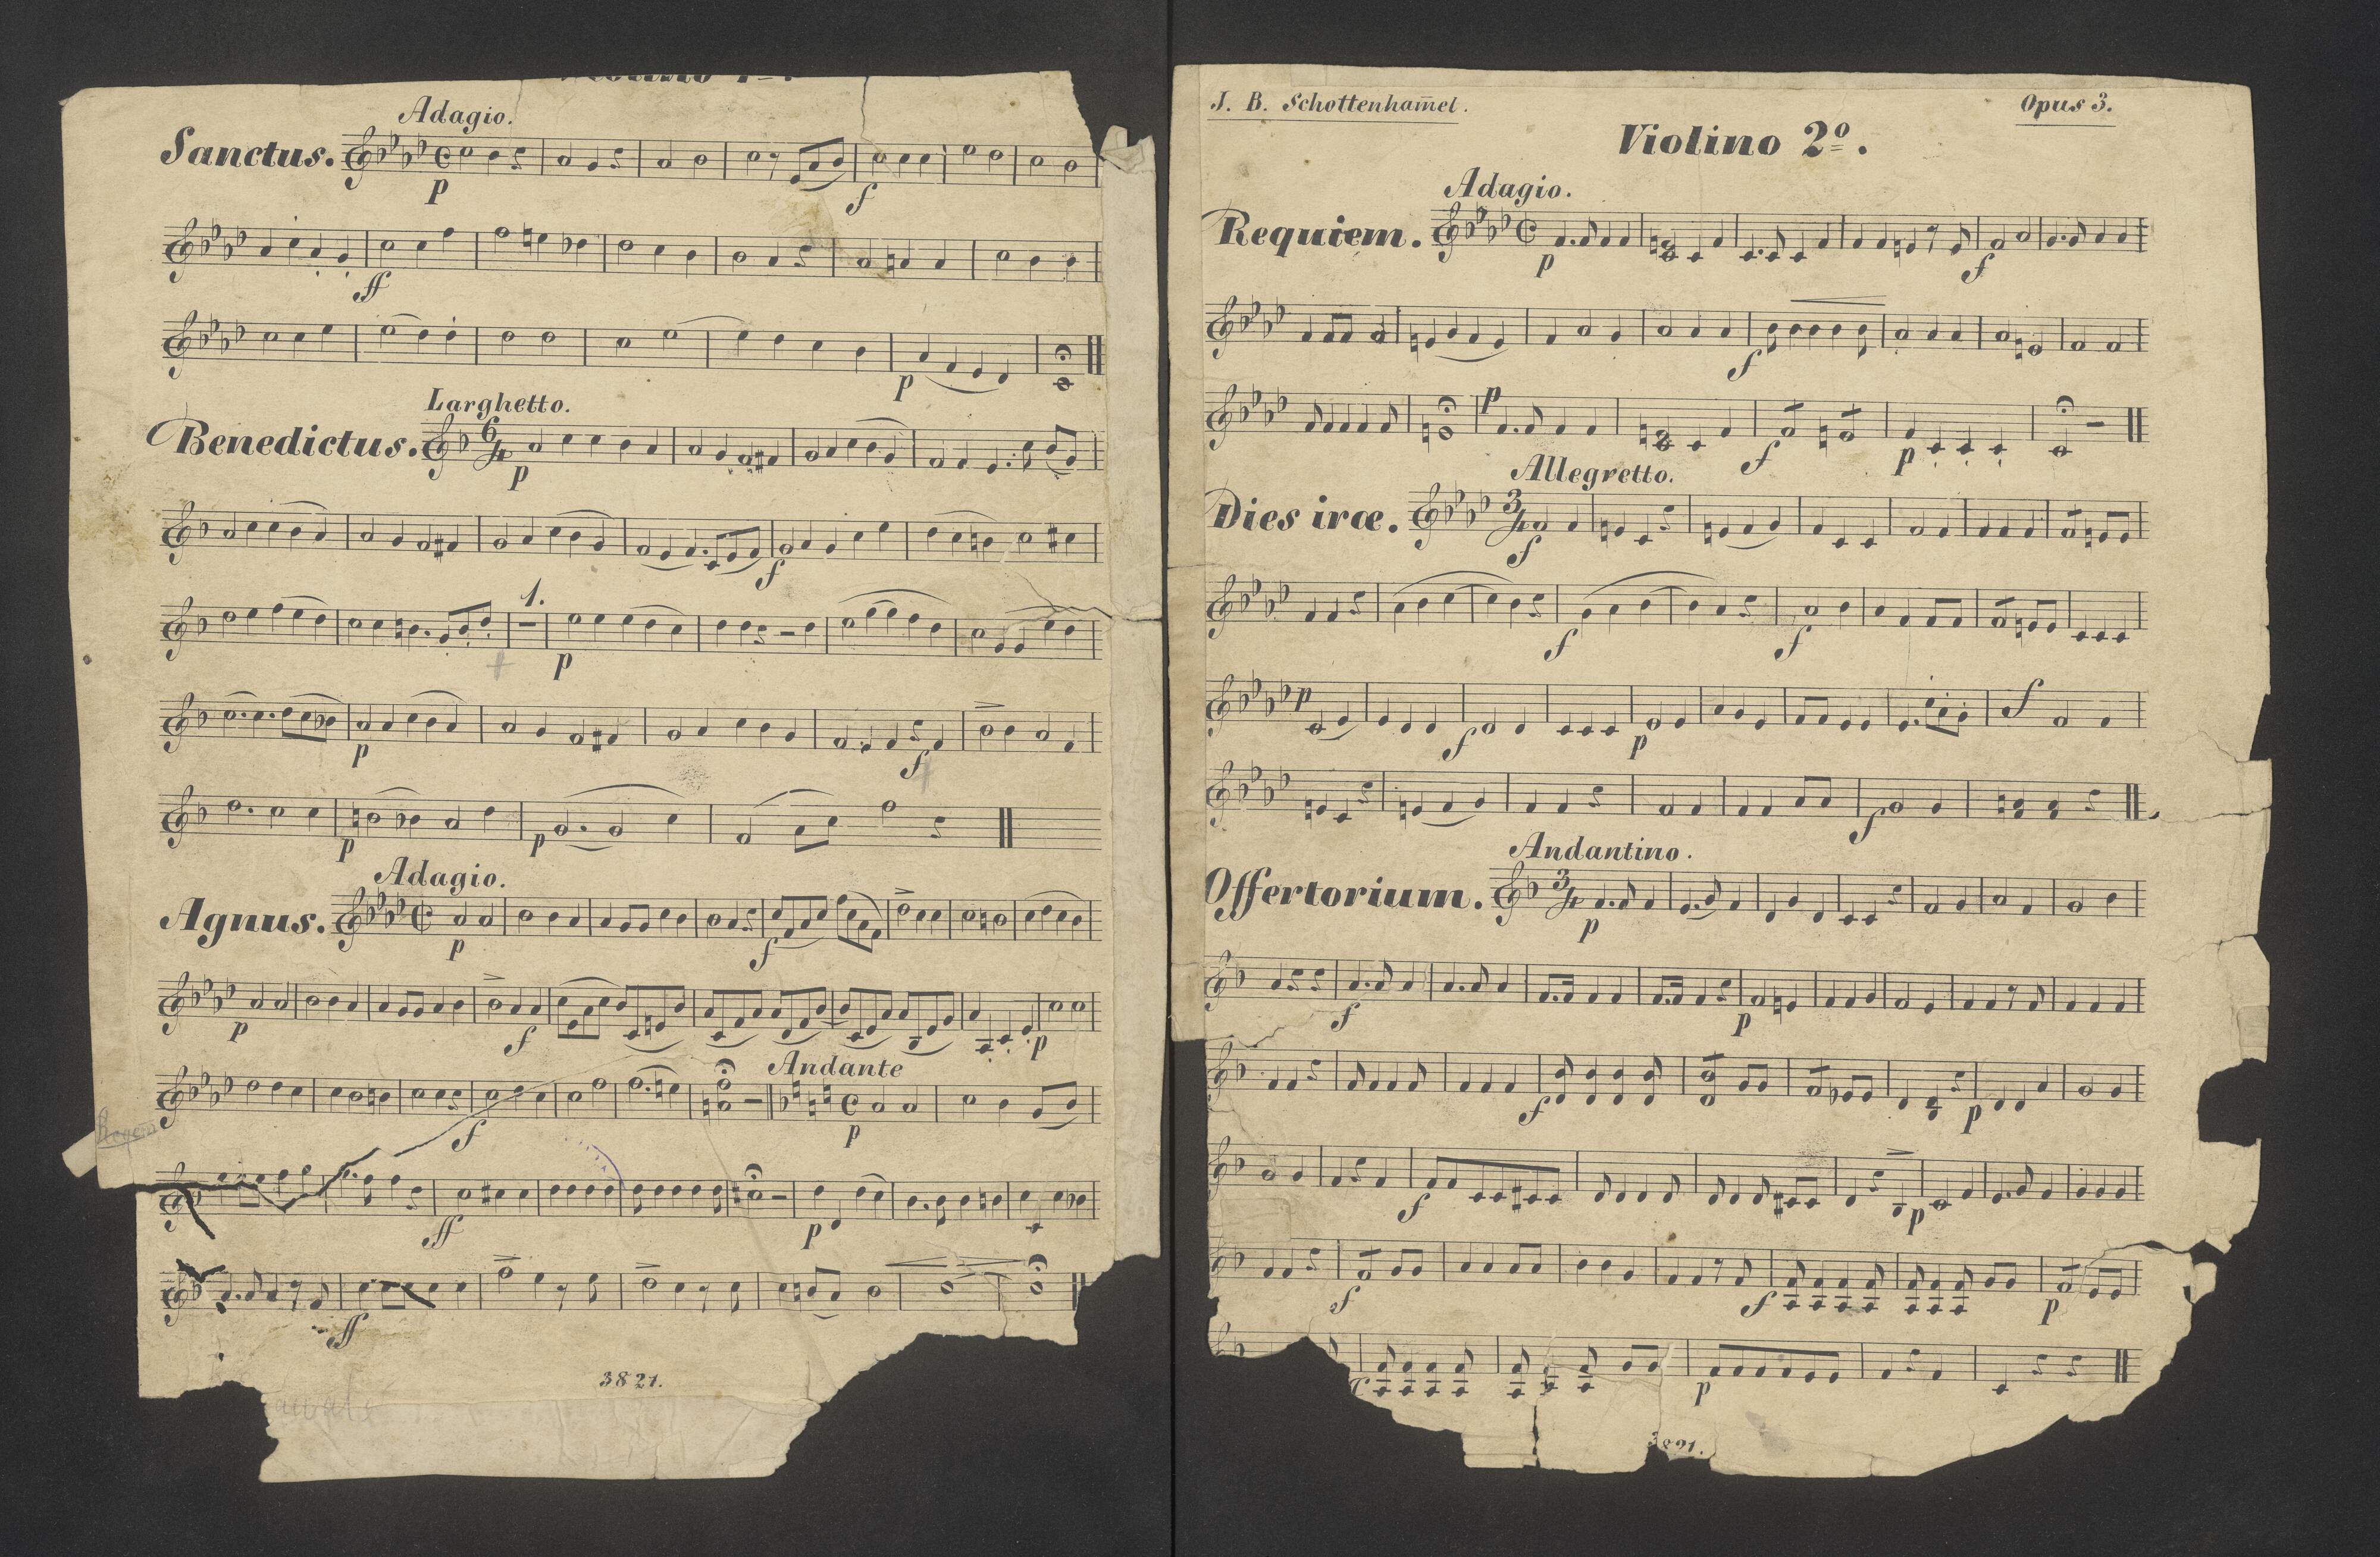 Adagio.
Sanctus.
p
f
ff
p
Larghetto.
Benedictus.
6/4
p
f
1.
p
p
f
p
p
Adagio.
Agnus.
p
f
p
f
p
Andante
f
p
ff
p
ff
3821.
J. B. Schottenham̅el.
Opus 3.
Violino 2º.
Adagio.
Requiem.
p
f
f
p
f
p
Allegretto.
Dies iræ.
3/4
f
f
f
p
f
p
f
f
Andantino.
Offertorium.
3/4
p
f
p
f
p
f
p
f
f
p
p
3821.